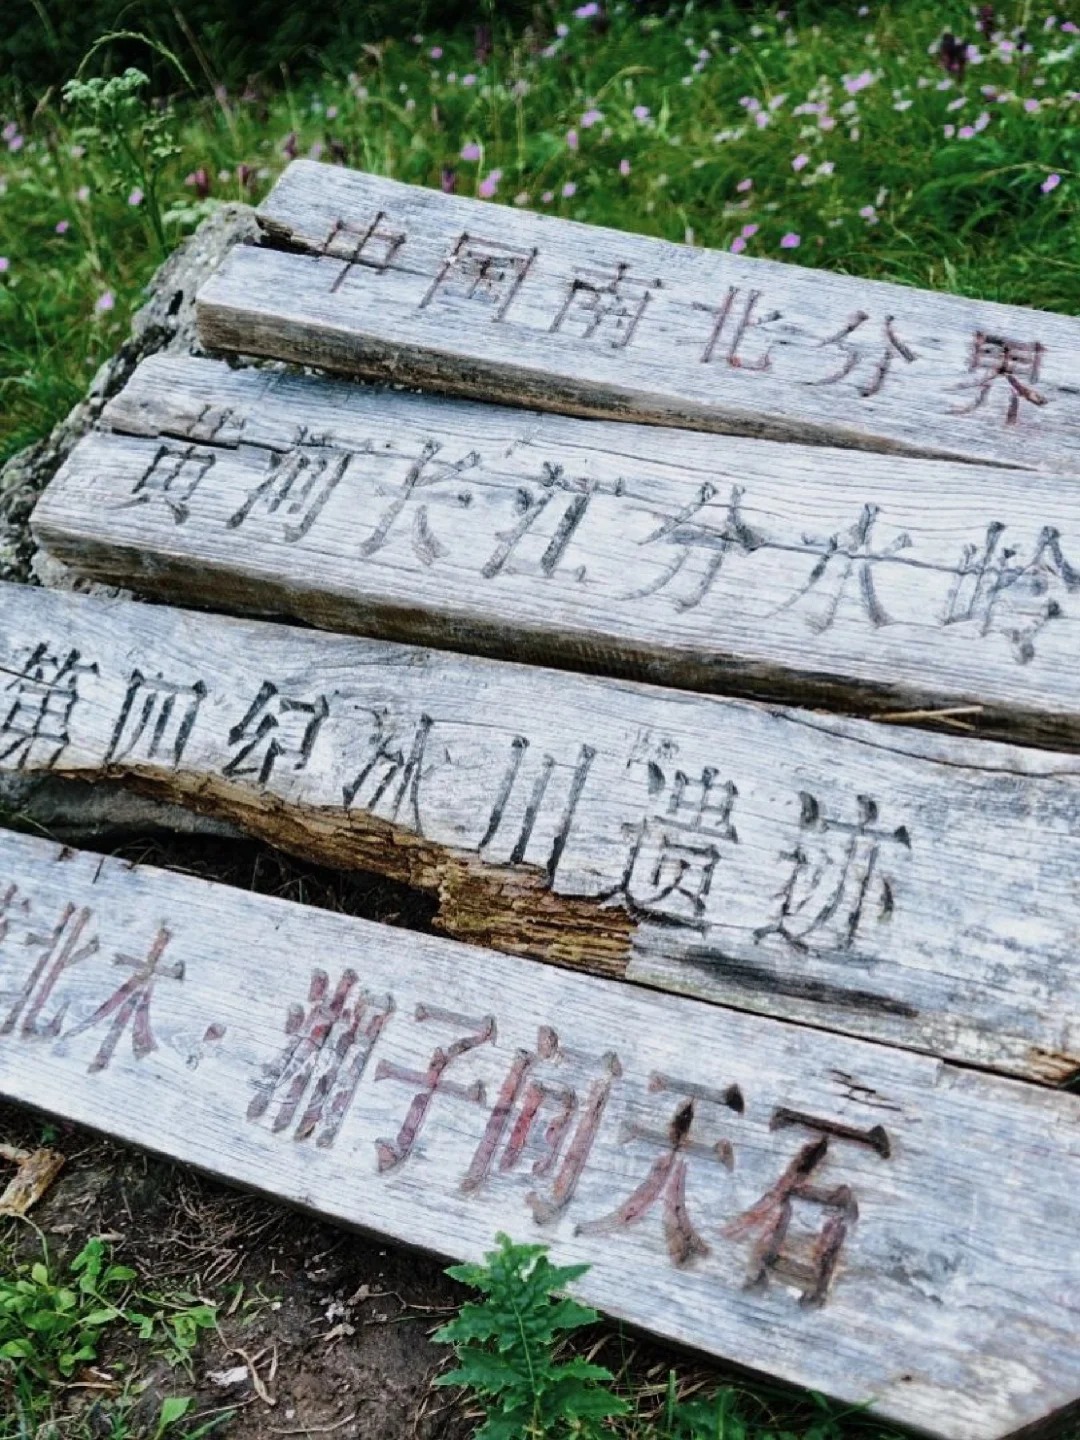 中国南北分界
黄河长江分水岭
第四纪冰川遗迹
北木·潮子问天石